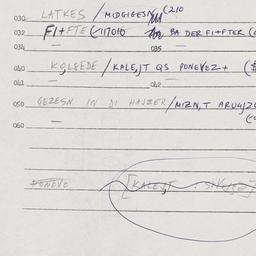 030 LATKES / MIDGIGESN (210
032 FI+FTE (-117016 BA DER FI+FTER
034 — 035
040 KGLEEDE / KALE,JT QS PONEVEZ+ ($
041 — 042 —
050 GEZESN IN DI HAJZER / MIZN,T
060 —
PONEVE [KALE,JT